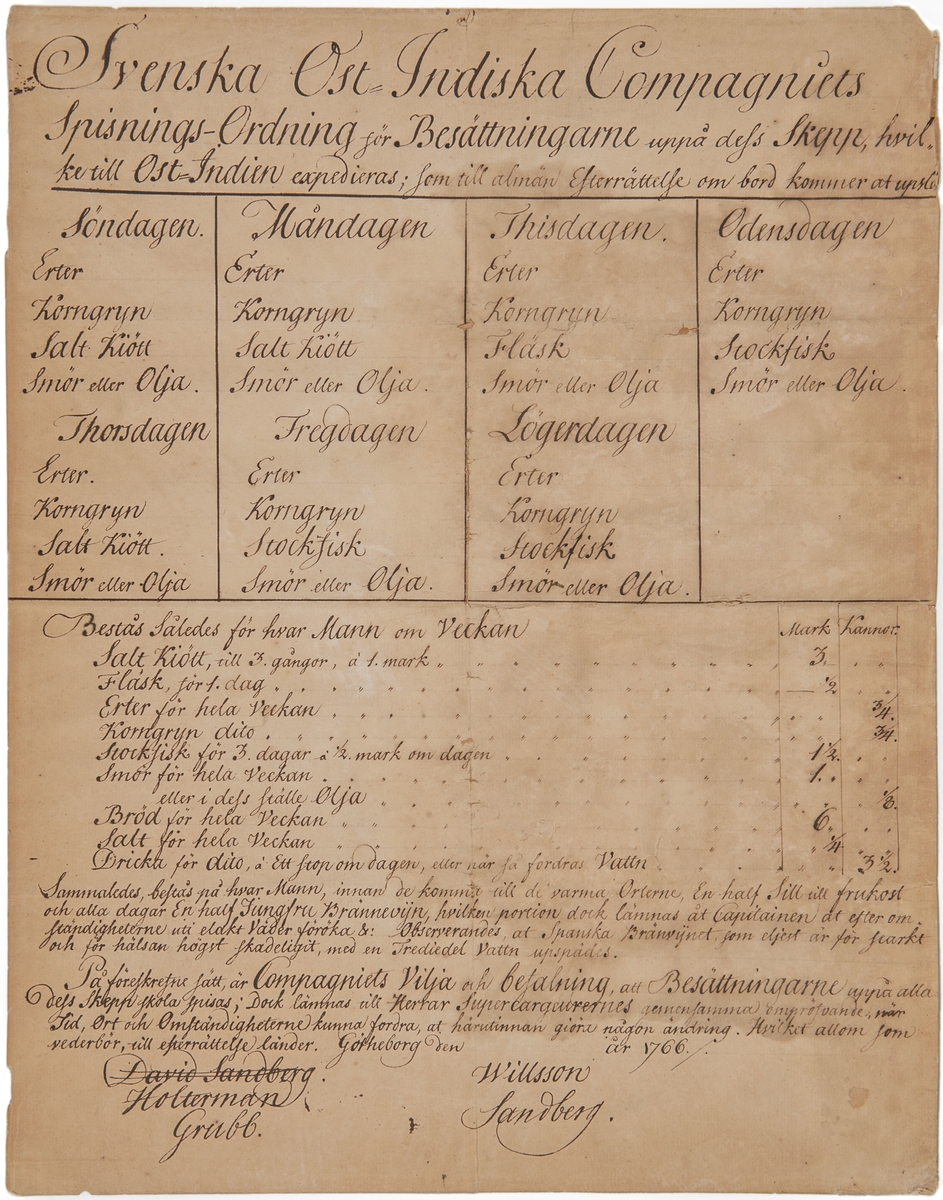 Svenska Ost-Indiska Compagniets
Spisnings-Ordning för Besättningarne uppå dess Skepp, hvil-
ke till Ost-Indien expedieras; som till almän Efterrättelse om bord kommer at upslå
Söndagen. Måndagen Thisdagen. Odensdagen
Erter Erter Erter Erter
Korngryn Korngryn Korngryn Korngryn
Salt Kiött Salt Kiött Fläsk Stockfisk
Smör eller Olja. Smör eller Olja. Smör eller Olja Smör eller Olja.
Thorsdagen Fregdagen Lögerdagen
Erter. Erter Erter
Korngryn Korngryn Korngryn
Salt Kiött. Stockfisk Stockfisk
Smör eller Olja Smör eller Olja. Smör eller Olja.
Bestås Således för hvar Mann om Veckan Mark Kannor.
Salt Kiött, till 3. gångor, á 1. mark 3.
Fläsk, för 1. dag — 1/2
Erter för hela Veckan 3/4.
Korngryn dito 3/4.
Stockfisk för 3. dagar á 1/2. mark om dagen 1 1/2.
Smör för hela Veckan 1.
eller i dess ställe Olja 1/8.
Bröd för hela Veckan 6.
Salt för hela Veckan 1/4
Dricka för dito, á Ett stop om dagen, eller når så fordras Vattn 3 1/2.
Sammaledes, bestås på hvar Mann, innan de komma till de varma Orterne, En half Sill till frukost
och alla dagar En half Jungfru Brännevijn, hvilken portion dock lämnas åt Capitainen at efter om-
ständigheterne uti elakt Väder föröka &: Observerandes, at Spanska Brånvijnet, som eljest är för starkt
och för hälsan högst skadeligit, med en Trediedel Vattn upspädes.
På föreskrefne sätt, är Compagniets Vilja och befalning, att Besättningarne uppå alla
dess Skepp skola spisas; Dock lämnas till Herrar Supercargeurernes gemensamma ompröfvande, når
Tid, Ort och Omständigheterne kunna fordra, at härutinnan giöra någon ändring. Hvilket allom som
vederbör, till efterrättelse länder. Götheborg den år 1766.
David Sandberg. Willsson
Holterman Sandberg.
Grubb.